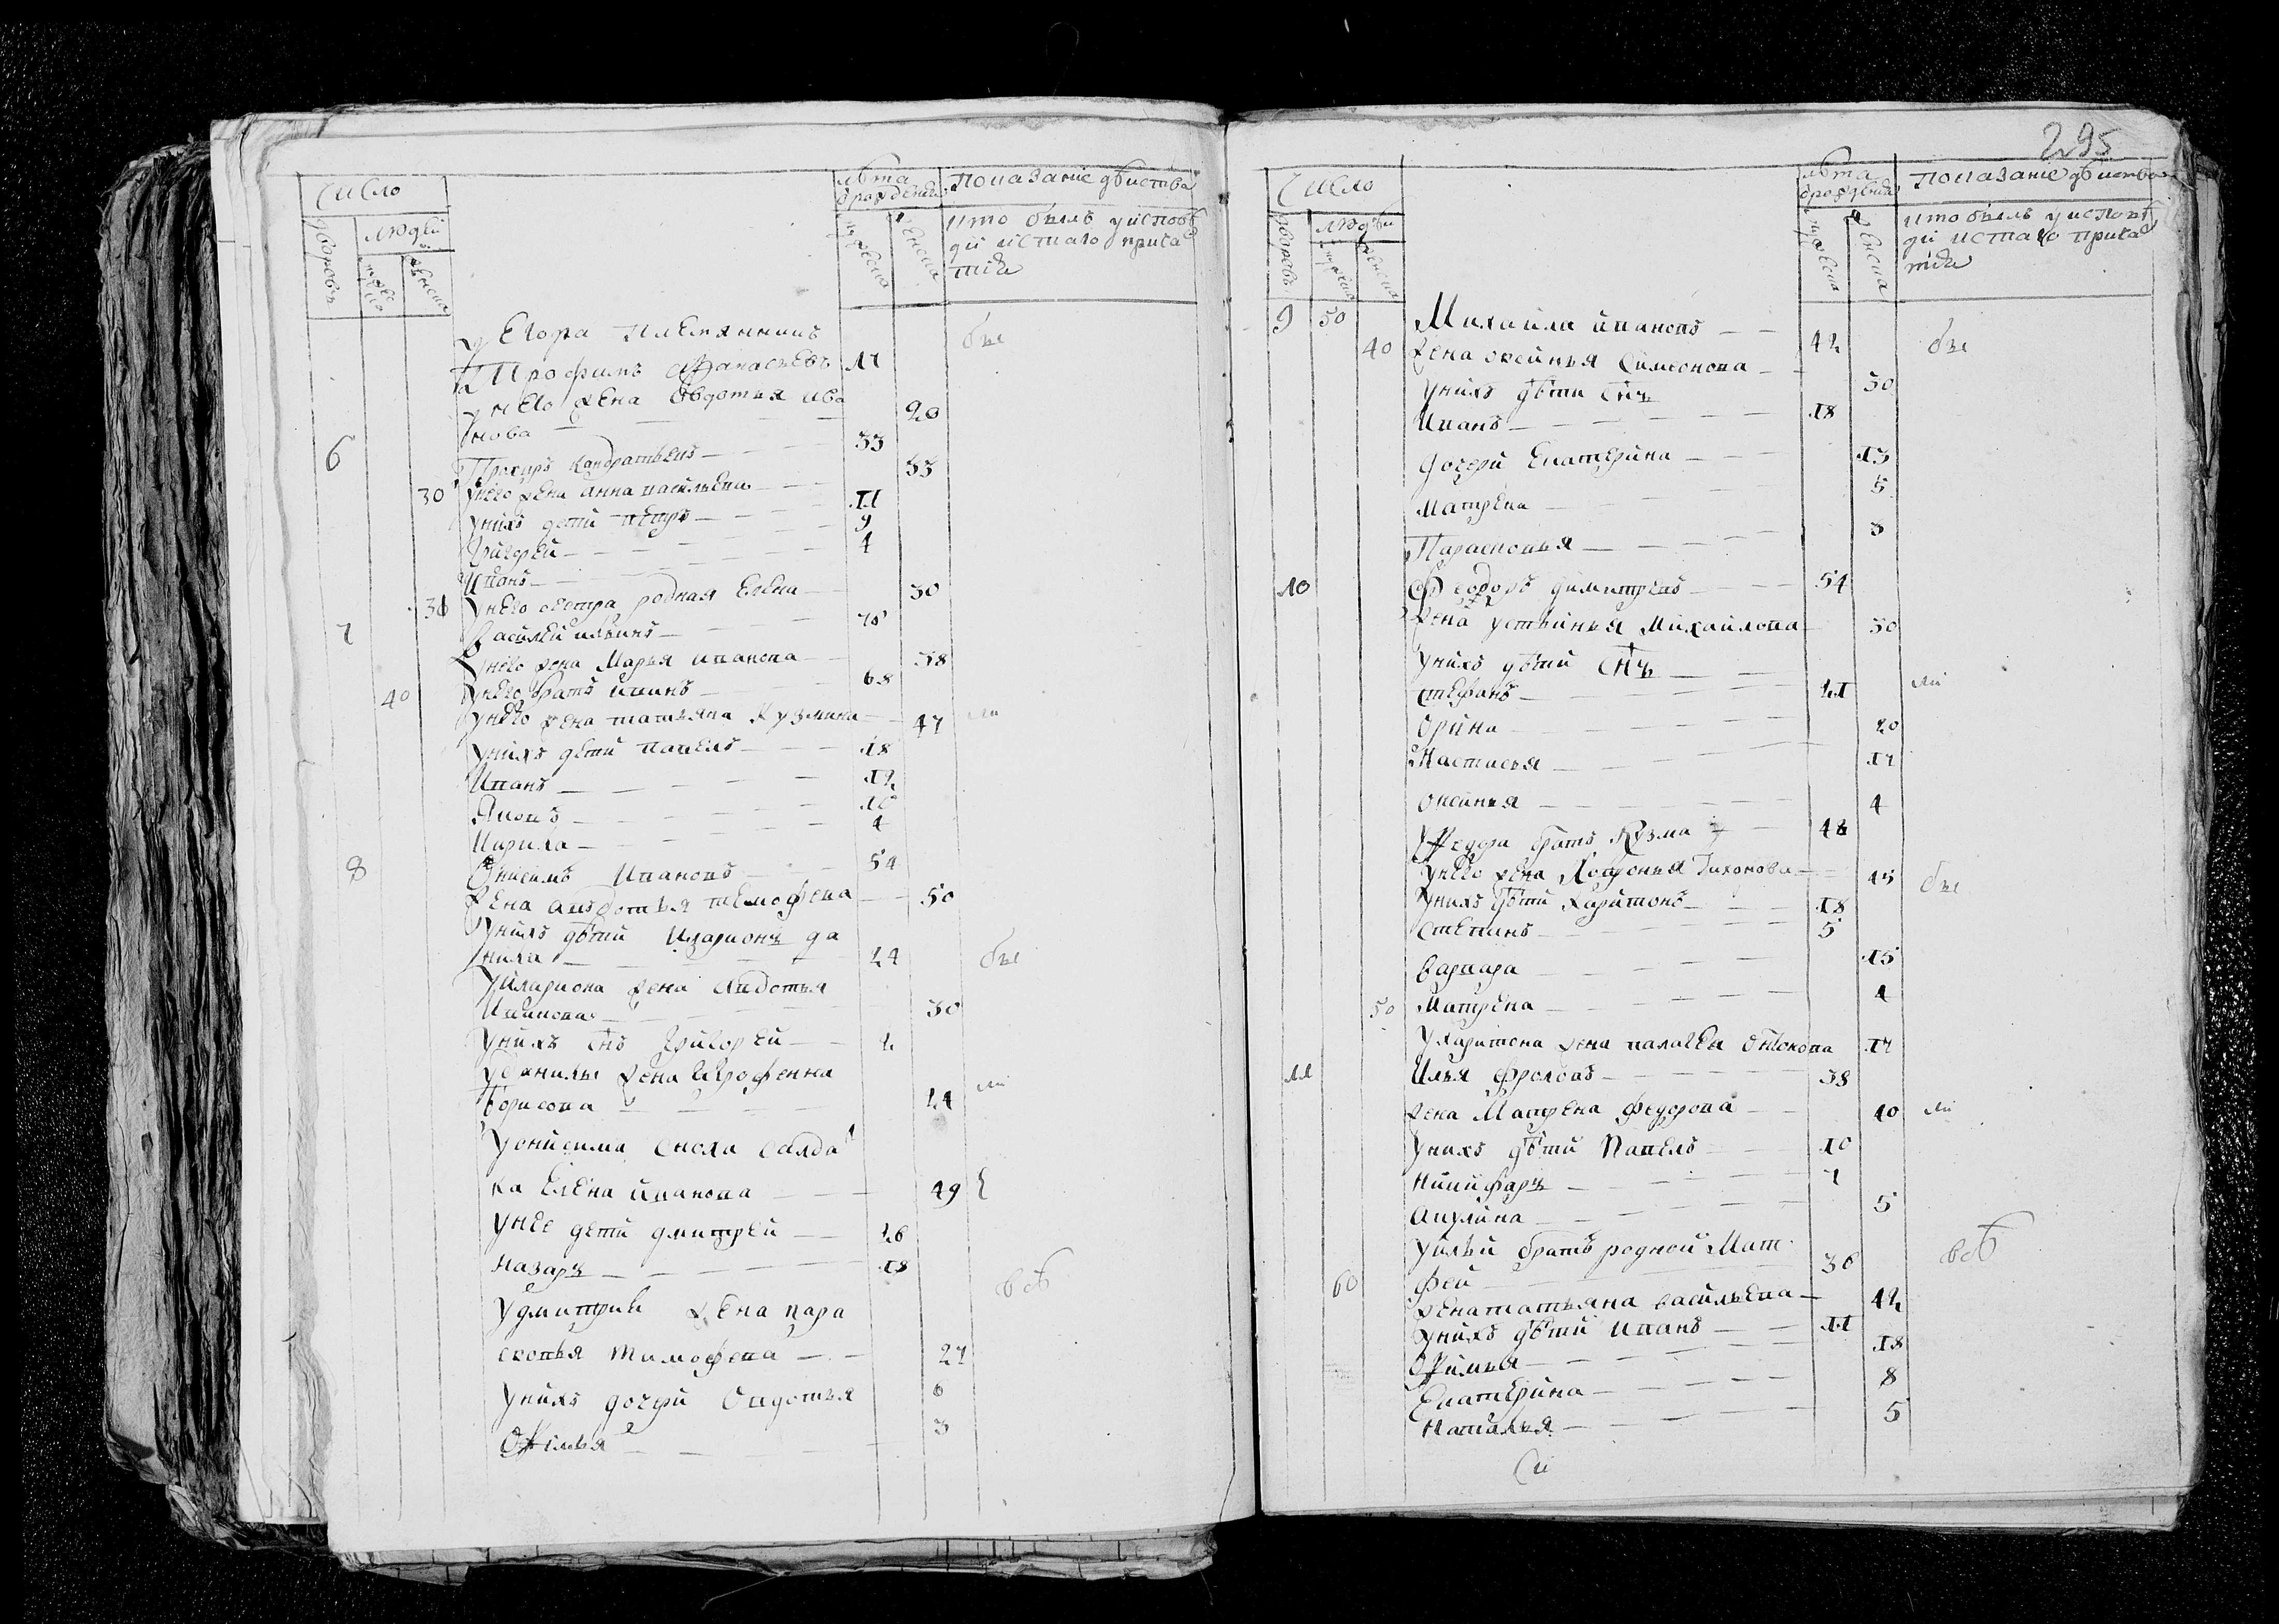 число
лѣта
ѿ рожденїѧ
Показанїе дѣиства
дворовъ
людей
мужеска
женска
мужеска
женска
кто былъ у исповѣ
ди и с҃таго прича
тїѧ
у Егора племянникъ
Трофимъ Афанасьевъ 17
у него жена Овдотья Ива
нова 20
6 Прохуръ Кандратьевъ 33
30 у него жена Анна Васильева 33
у нихъ дети Петръ 11
Григорей 9
Иванъ 4
у него сестра родная Елена 30
7 Василей Ильинъ 70
у него жена Марья Иванова 58
40 у него братъ 68
у него жена Татьяна Кузмина 47
у нихъ дети Павелъ 18
Иванъ 12
Яковъ 10
Кирила 4
8 Онисимъ Ивановъ 54
жена Авдотья Темофева 50
у нихъ дѣти Иларионъ Да
нила 24
бы
у Илариона жена Авдотья
30
у нихъ с҃нъ Григорей 2
у Данилы жена Агрофенна
Борисова 24
у Онисима сноха салда
ка Елена Иванова 49
у нее дети Дмитрей 26
Назаръ 18
у Дмитрия жена Пара
сковья Тимофева 27
всѣ
у нихъ дочери Овдотья 6
Офимья 3
295
число
лѣта
ѿ рожденїѧ
Показанїе дѣиства
дворовъ
людѣй
мужеска
женска
мужеска
женска
кто былъ у исповѣ
ди и с҃таго прича
тїѧ
9 50 Михайла Ивановъ 42
бы
40 жена Оксинья Симеонова 50
у нихъ дѣти с҃нъ
Иванъ 18
дочери Екатерина 13
Матрена 5
Парасковья 3
10 Феодоръ Димитревъ 54
жена Устинья Михайлова 50
у нихъ дѣти с҃нъ
Стефанъ 21
Орина 20
Настасья 17
Оксинья 4
у Федора братъ Кузма 48
у него жена Хопронья Тихонова 45
бы
у нихъ дѣти Харитонъ 18
Степанъ 5
Варвара 15
50 Матрена 4
у Харитона жена Палагея 17
11 Илья Фроловъ 38
жена Матрена Федорова 40
у нихъ дѣти Павелъ 10
Никифаръ 7
Акулина 5
у Ильи братъ родной Мат
60 фей 36
всѣ
жена Татьяна Васильева 42
у нихъ дѣти Иванъ 11
Офимья 18
Екатерина 8
Наталья 5